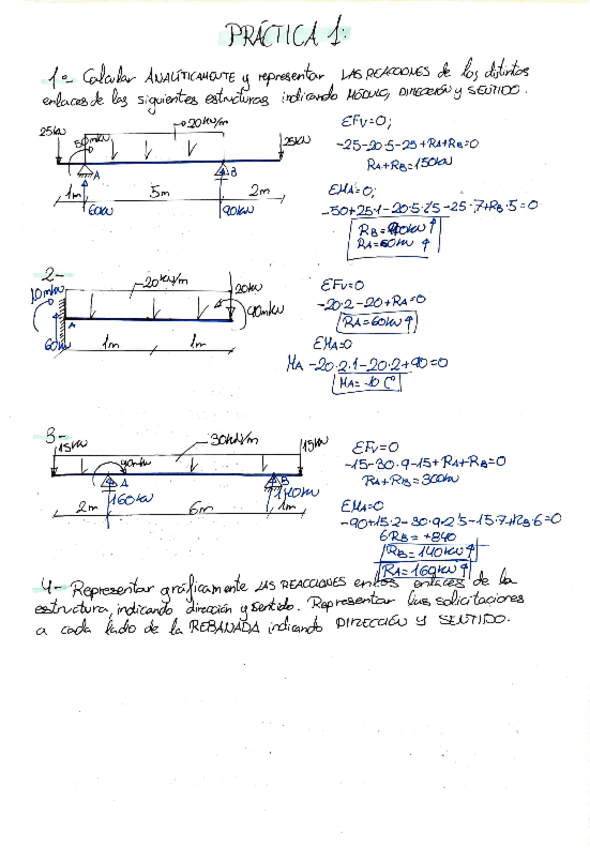 PRÁCTICA 1:
1º- Calcular ANALÍTICAMENTE y representar LAS REACCIONES de los distintos
enlaces de las siguientes estructuras indicando MÓDULO, DIRECCIÓN y SENTIDO.
20kN/m
25kN
50mkN
25kN
A
B
1m
5m
2m
60kN
90kN
EFv=0;
-25-20·5-25+RA+RB=0
RA+RB=150kN
EMA=0;
-50+25·1-20·5·2'5-25·7+RB·5=0
RB=90kN ↑
RA=60kN ↑
2-
20kN/m
10mkN
20kN
90mkN
A
60kN
1m
1m
EFv=0
-20·2-20+RA=0
RA=60kN ↑
EMA=0
MA-20·2·1-20·2+90=0
MA=-10
3-
30kN/m
15kN
15kN
90mkN
A
B
160kN
140kN
2m
6m
1m
EFv=0
-15-30·9-15+RA+RB=0
RA+RB=300kN
EMA=0
-90+15·2-30·9·2'5-15·7+RB·6=0
6RB=+840
RB=140kN ↑
RA=160kN ↑
4- Representar gráficamente LAS REACCIONES en los enlaces de la
estructura, indicando dirección y sentido. Representar las solicitaciones
a cada lado de la REBANADA indicando DIRECCIÓN Y SENTIDO.